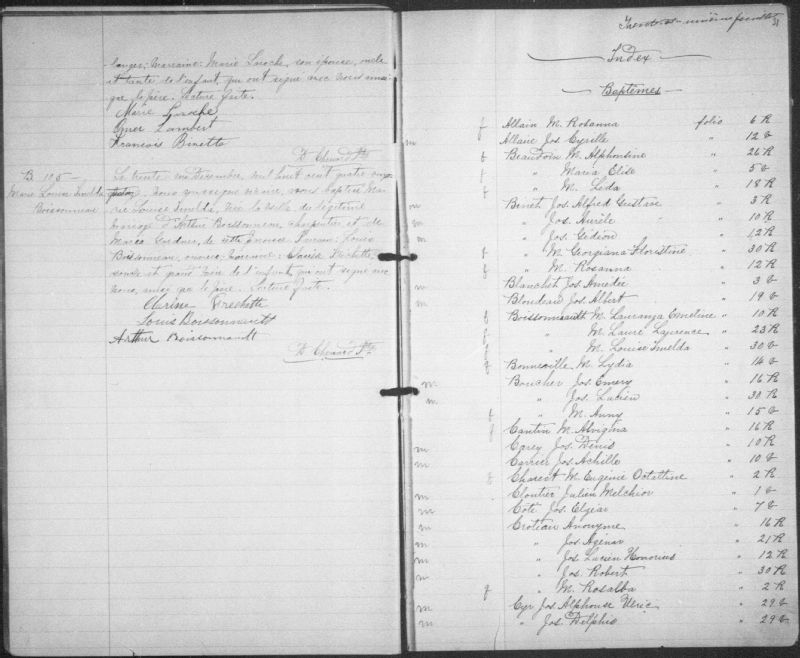 langer; marraine: Marie Laroche, son épouse, oncle
et tante de l'enfant, qui ont signé avec nous ainsi
que le père. Lecture faite.
Marie Laroche
Omer Lambert
Francois Binette
D. Chenard Ptre
B. 105 —
Marie Louise Imelda
Boissonneau
Le trente un Décembre, mil huit cent quatre vingt
nous soussigné vicaire, avons baptisé Ma-
rie Louise Imelda, née la veille du légitime
mariage d'Arthur Boissonneau, charpentier et de
Maria Gardner, de cette paroisse. Parrain: Louis
Boissonneau, marraine: Frechette,
de l'enfant, qui ont signé avec
nous, ainsi que le père. Lecture faite.
Frechette
Louis Boissonnault
Arthur Boissonnault
D. Chenard Ptre
feuillet
31
Index
Baptêmes
f Allain M. Rosanna folio 6 R
m Allaire Jos. Cyrille " 12 v
f Beaudoin M. Alphonsine " 26 R
f " Maria Elise " 5 v
f " M. Leda " 18 R
m Binet Jos. Alfred Gustave " 3 R
m " Jos. Aurèle " 10 R
m " Jos. Gédéon " 12 R
f " M. Georgiana Floristine " 30 R
f " M. Rosanna " 12 R
m Blanchet Jos. Amedée " 3 v
m Blondeau Jos. Albert " 19 v
f Boissonneault M. Lauranza Emeline " 10 R
f " M. Laure Laurence " 23 R
f " M. Louise Imelda " 30 v
f Bonneville M. Lydia " 14 v
m Boucher Jos. Emery " 16 R
m " Jos. Lucien " 30 R
f " M. Anny " 15 v
f Cantin M. Alvigina " 16 R
m Carey Jos. Denis " 10 R
m Carrier Jos. Achille " 10 v
f Charest M. Eugénie Octaline " 2 R
m Cloutier Julien Melchior " 1 v
m Coté Jos. Elzéar " 7 v
m Croteau Anonyme " 16 R
m " Jos. Agenor " 21 R
m " Jos. Lucien Honorius " 12 R
m " Jos. Robert " 30 R
f " M. Rosalba " 2 R
m Cyr Jos. Alphonse Ulric " 29 v
m " Jos. Delphis " 29 v